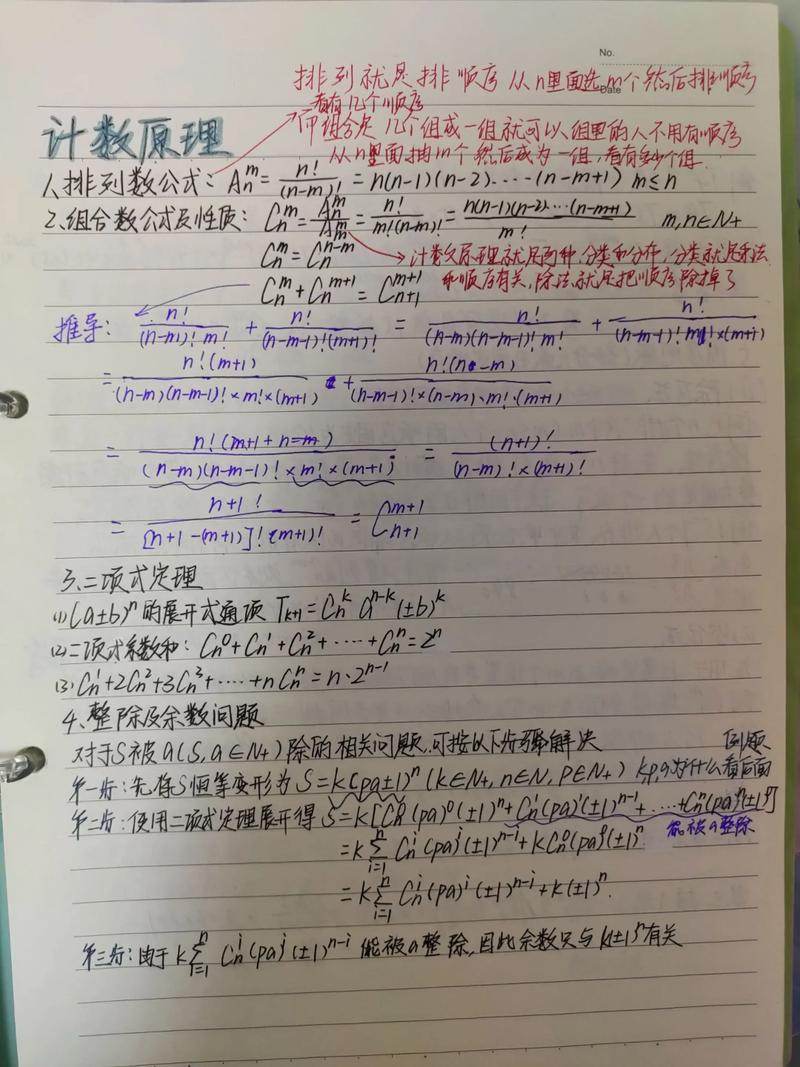 No.
Date
排列就是排顺序 从n里面选m个然后排顺序
看有几个顺序
计数原理
组合是 几个组成一组就可以 组里的人不用有顺序
从n里面抽m个然后成为一组,看有多少个组.
1、排列数公式: A_n^m = n!/(n-m)! = n(n-1)(n-2)....(n-m+1) m≤n
2、组合数公式及性质: C_n^m = A_n^m/A_m^m = n!/(m!(n-m)!) = n(n-1)(n-2)...(n-m+1)/m! m,n∈N+
C_n^m = C_n^{n-m}
计数原理就是两种,分类和分步,分类就是乘法
C_n^m + C_n^{m+1} = C_{n+1}^{m+1}
和顺序有关,除法就是把顺序除掉了
推导: n!/((n-m)!m!) + n!/((n-m-1)!(m+1)!) = n!/((n-m)(n-m-1)!m!) + n!/((n-m-1)!m!×(m+1))
= n!(m+1)/((n-m)(n-m-1)!×m!×(m+1)) + n!(n-m)/((n-m-1)!×(n-m)·m!·(m+1))
= n!(m+1+n-m)/((n-m)(n-m-1)!×m!×(m+1)) = (n+1)!/((n-m)!×(m+1)!)
= n+1!/([n+1-(m+1)]!(m+1)!) = C_{n+1}^{m+1}
3、二项式定理
(1)(a±b)^n的展开式通项 T_{k+1}=C_n^k a^{n-k}(±b)^k
(2)二项式系数和: C_n^0+C_n^1+C_n^2+....+C_n^n=2^n
(3)C_n^1+2C_n^2+3C_n^3+....+nC_n^n=n·2^{n-1}
4、整除及余数问题
对于S被a(S,a∈N+)除的相关问题,可按以下步骤解决
例题
第一步:先将S恒等变形为 S=k(pa±1)^n(k∈N+,n∈N,p∈N+) k,p,a为什么看后面
第二步:使用二项式定理展开得 S=k[C_n^0(pa)^0(±1)^n+C_n^1(pa)^1(±1)^{n-1}+....+C_n^n(pa)^n(±1)^0]
能被a整除
=k∑_{i=1}^n C_n^i(pa)^i(±1)^{n-i}+kC_n^0(pa)^0(±1)^n
=k∑_{i=1}^n C_n^i(pa)^i(±1)^{n-i}+k(±1)^n.
第三步:由于k∑_{i=1}^n C_n^i(pa)^i(±1)^{n-i} 能被a整除,因此余数只与k(±1)^n有关